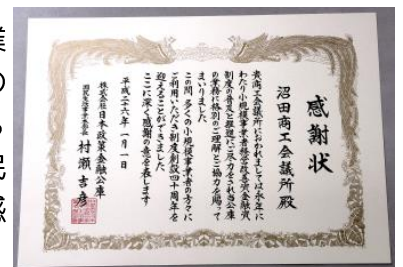 感謝状
沼田商工会議所殿
貴商工会議所におかれましては永年に
わたり小規模事業者経営改善資金融資
制度の普及と推進にご尽力をされ当公庫
の業務に格別のご理解とご協力を賜って
まいりました
この間 多くの小規模事業者の方々に
ご利用いただき制度創設四十周年を
迎えることができました
ここに深く感謝の意を表します
平成二十六年一月一日
株式会社日本政策金融公庫
国民生活事業本部長 村瀬吉彦
業
の
民
感